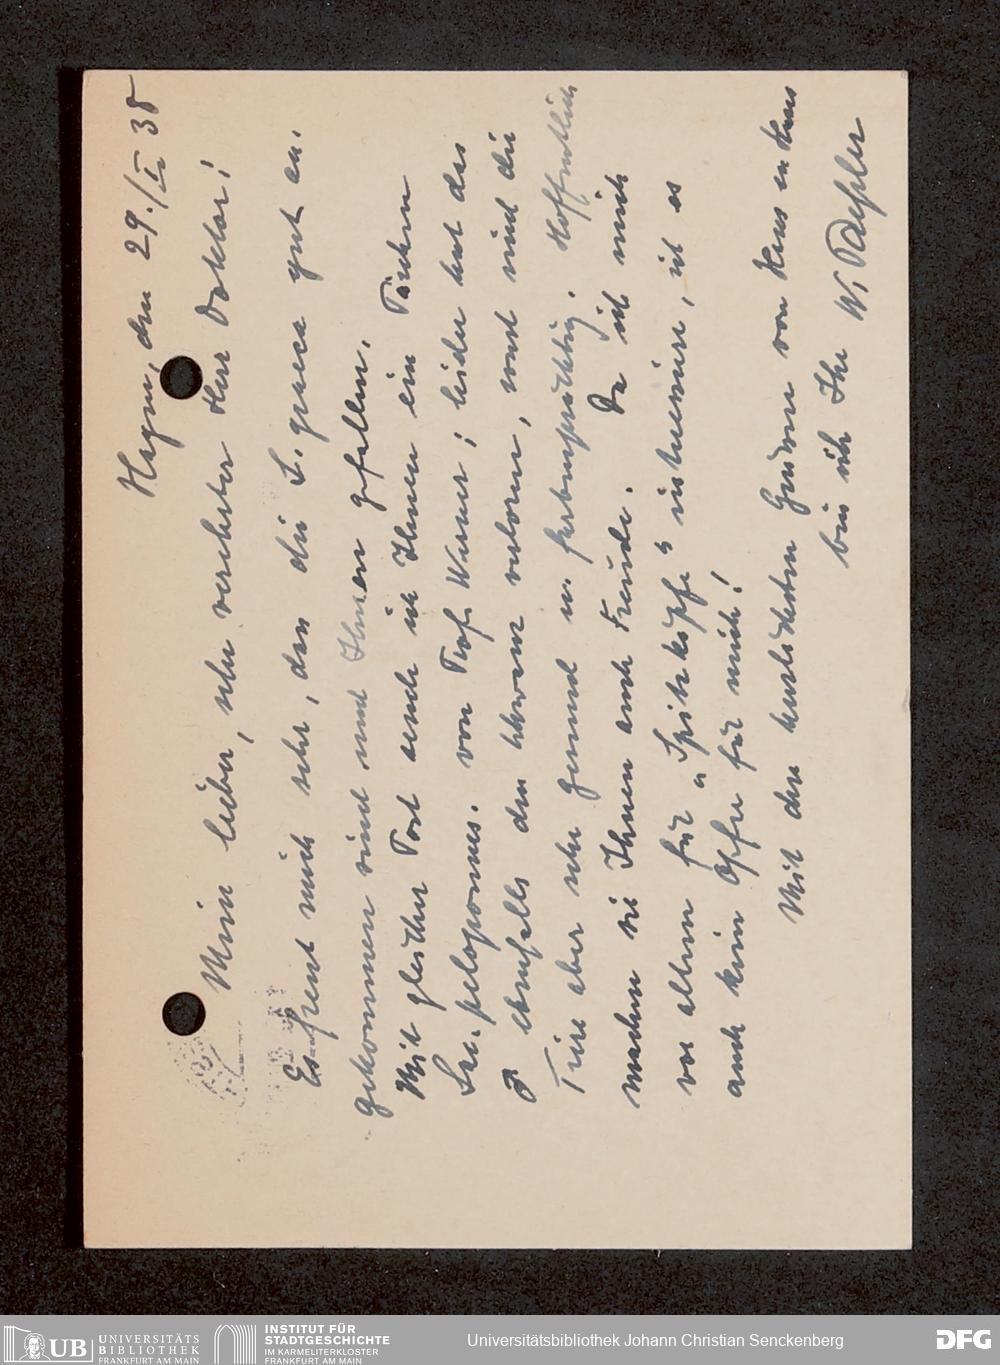 Hagen, den 29./I 38
Mein lieber, sehr verehrter Herr Doktor!
Es freut mich sehr, dass die L. graeca gut an.
gekommen sind und Ihnen gefallen.
Mit gleicher Post sende ich Ihnen ein Pärchen
Lac. peloponnes. von Prof. Werner; leider hat das
♂ ebenfalls den Schwanz verloren, sonst sind die
Tiere aber sehr gesund u. farbenprächtig. Hoffentlich
machen sie Ihnen auch Freude. Da ich mich
vor allem für "Spitzköpfe" interessiere, ist es
auch kein Opfer für mich!
Mit den herzlichsten Grüssen von Haus zu Haus
bin ich Ihr W.
UB UNIVERSITÄTS
BIBLIOTHEK
FRANKFURT AM MAIN
INSTITUT FÜR
STADTGESCHICHTE
IM KARMELITERKLOSTER
FRANKFURT AM MAIN
Universitätsbibliothek Johann Christian Senckenberg
DFG